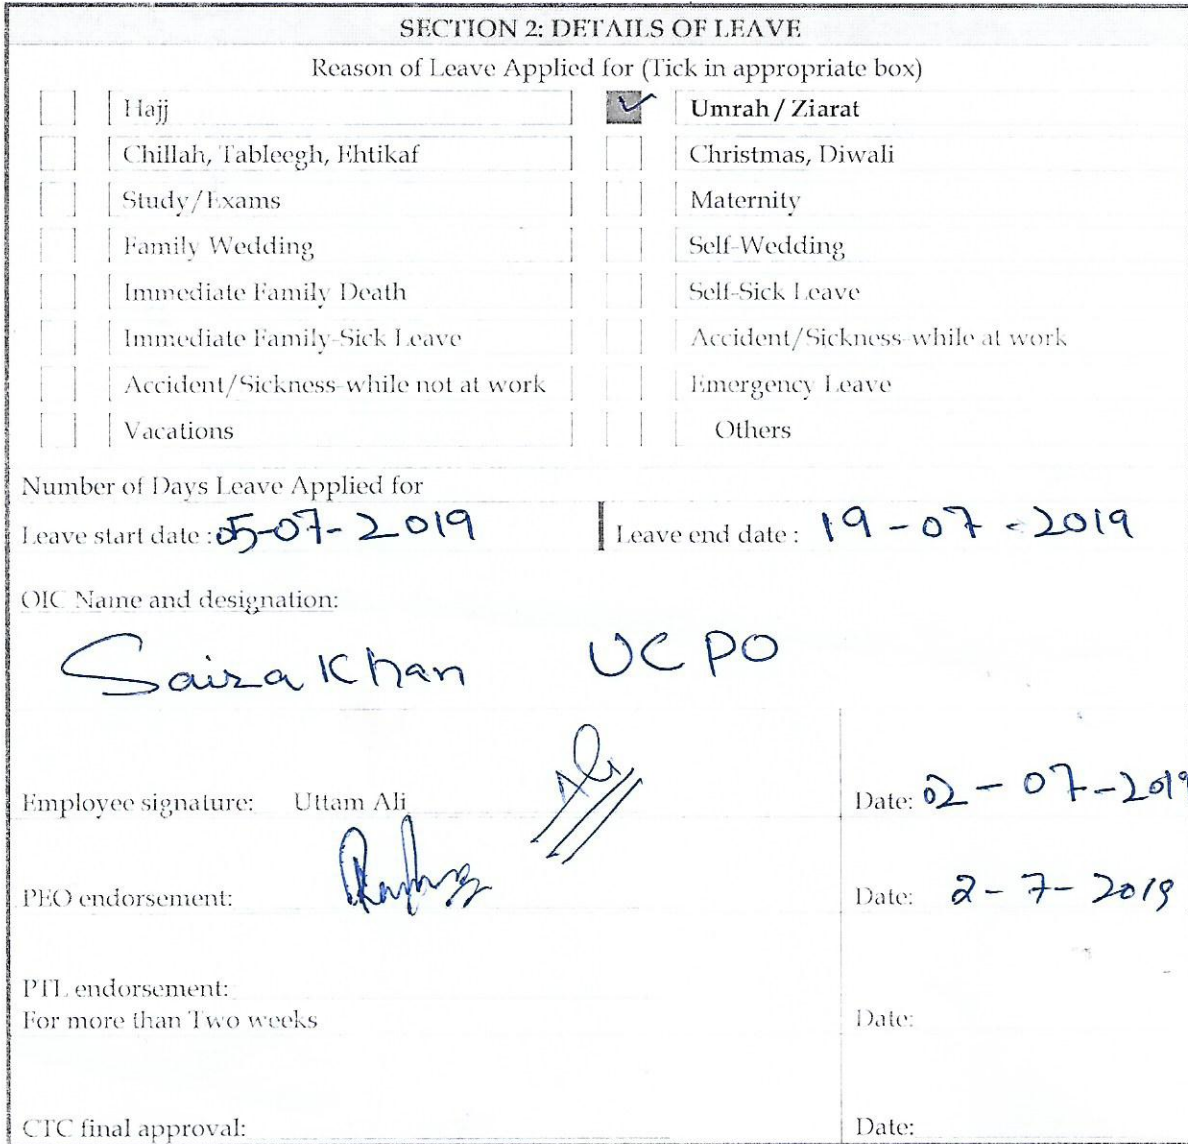 SECTION 2: DETAILS OF LEAVE
Reason of Leave Applied for (Tick in appropriate box)
Hajj Umrah / Ziarat
Chillah, Tableegh, Ehtikaf Christmas, Diwali
Study/Exams Maternity
Family Wedding Self-Wedding
Immediate Family Death Self-Sick Leave
Immediate Family-Sick Leave Accident/Sickness-while at work
Accident/Sickness-while not at work Emergency Leave
Vacations Others
Number of Days Leave Applied for
Leave start date : 05-07-2019 Leave end date : 19-07-2019
OIC Name and designation:
Saira Khan UCPO
Employee signature: Uttam Ali Ali Date: 02-07-2019
PEO endorsement: Date: 2-7-2019
PTL endorsement:
For more than Two weeks Date:
CTC final approval: Date: